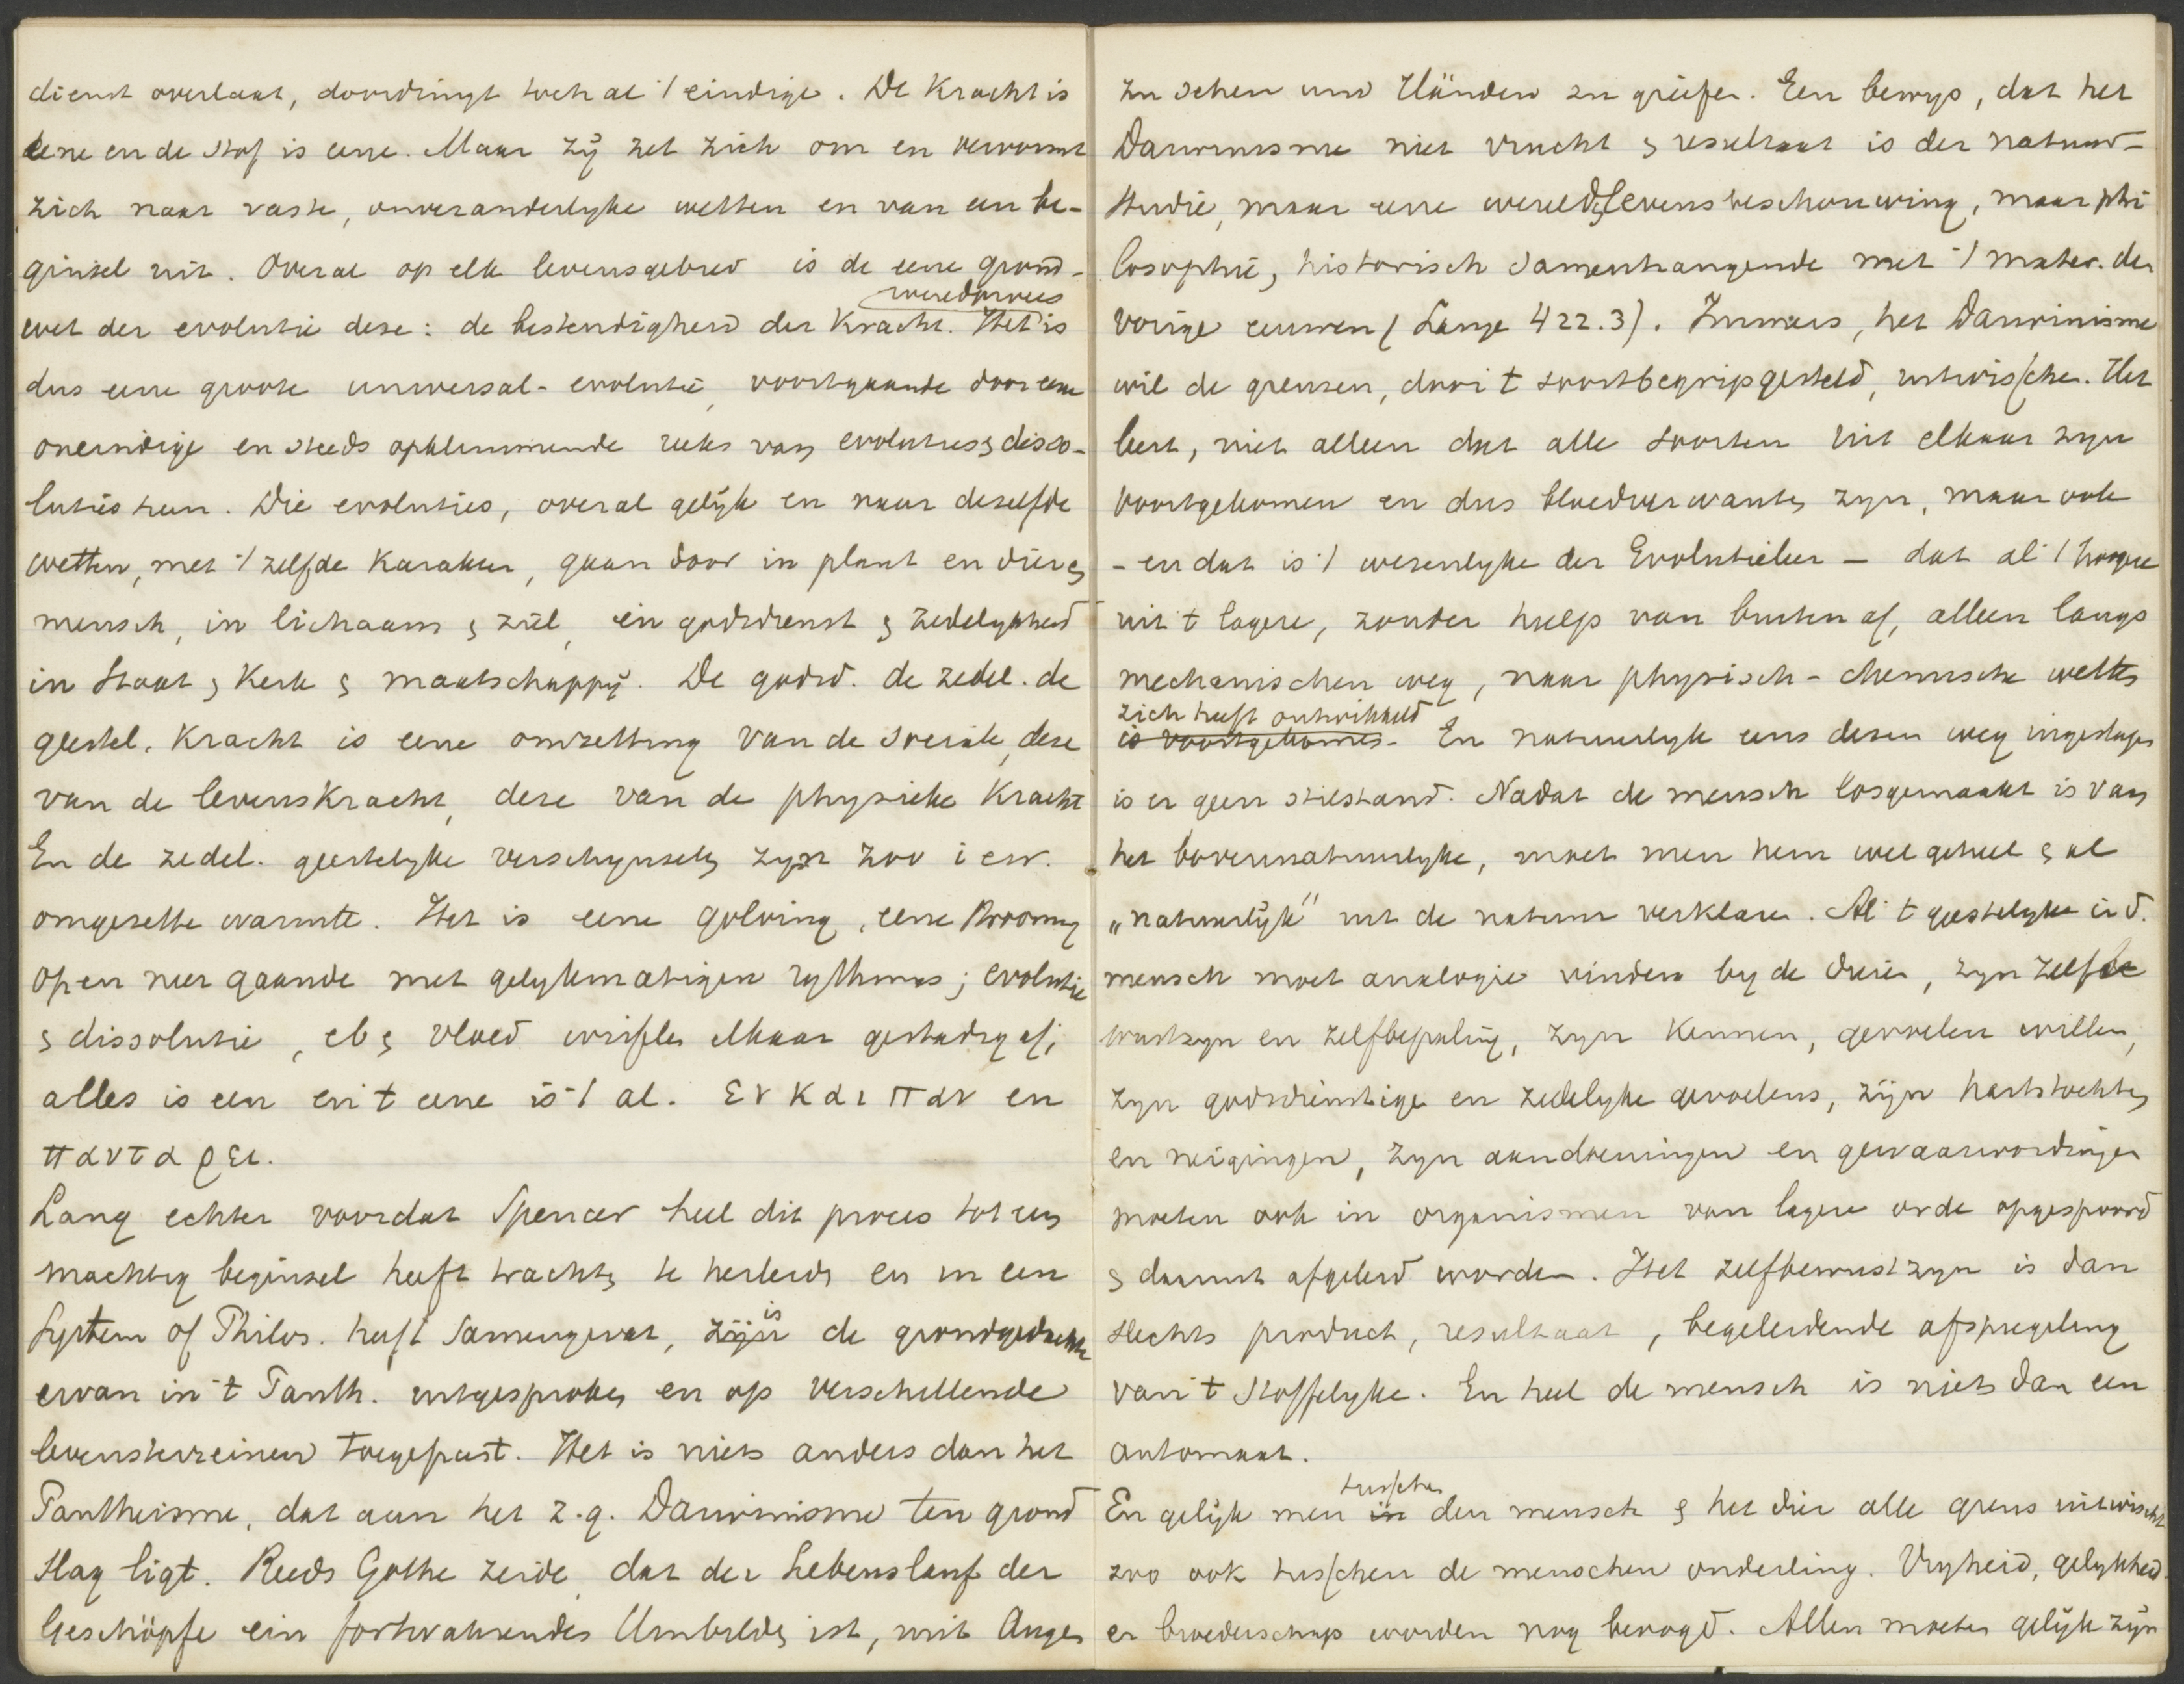 dienst overlaat, doordringt toch al 't eindige. De Kracht is
eene en de stof is eene. Maar zij zet zich om en vervormt
zich naar vaste, onveranderlyke wetten en van een be-
ginsel uit. Overal op elk levensgebied is de eene grond-
wet der evolutie deze: de bestendigheid der Kracht. Het is
dus eene groote universal-evolutie, voortgaande door eene
oneindige en steeds opklimmende reeks van evoluties & disso-
luties heen. Die evoluties, overal gelijk en naar dezelfde
wetten, met 't zelfde Karakter, gaan door in plant en dier &
mensch, in lichaam & ziel, in godsdienst & zedelykheid
in Staat & Kerk & maatschappij. De godsd. de zedel. de
geestel. Kracht is eene omzetting van de sociale, deze
van de levenskracht, deze van de physieke Kracht
En de zedel. geestelyke verschynselen zyn zoo i e w.
omgezette warmte. Het is eene golving, eene strooming
op en neer gaande met gelykmatigen rythmus; evolutie
& dissolutie, eb & vloed wisselen elkaar gestadig af;
alles is een en 't eene is 't al. εν και παν en
παντα ρει.
Lang echter voordat Spencer heel dit proces tot een
machtig beginsel heeft trachten te herleiden en in een
System of Philos. heeft samengevat, is de grondgedachte
ervan in 't Panth. uitgesproken en op verschillende
levensterreinen toegepast. Het is niets anders dan het
Pantheisme, dat aan het z.g. Darwinisme ten grond
slag ligt. Reeds Göthe zeide, dat der Lebenslauf der
Geschöpfe ein fortwährendes Umbilden ist, mit Augen
zu sehen und Händen zu greifen. Een bewys, dat het
Darwinisme niet vrucht & resultaat is der natuur-
studie, maar eene wereld & levensbeschouwing, maar phi
losophie, historisch samenhangende met 't mater. der
vorige eeuwen (Lange 422.3). Immers, het Darwinisme
wil de grenzen, door 't soortbegrip gesteld, uitwisschen. Het
leert, niet alleen dat alle soorten uit elkaar zyn
voortgekomen en dus bloedverwanten zyn, maar ook
- en dat is 't wezenlyke der Evolutieleer - dat al 't hoogere
uit 't lagere, zonder hulp van buiten af, alleen langs
mechanischen weg, naar physisch-chemische wetten
zich heeft ontwikkeld
is voortgekomen. En natuurlyk eens dezen weg ingeslagen
is er geen stilstand. Nadat de mensch losgemaakt is van
het bovennatuurlyke, moet men hem wel geheel & al
„natuurlijk" uit de natuur verklaren. Al 't geestelyke in d.
mensch moet analogie vinden by de dieren, zyn zelfbe
wustzyn en zelfbepaling, zyn Kennen, gevoelen willen,
zyn godsdienstige en zedelyke gevoelens, zijn hartstochten
en neigingen, zyn aandoeningen en gewaarwordingen
moeten ook in organismen van lagere orde opgespoord
& daaruit afgeleid worden. Het zelfbewustzyn is dan
slechts product, resultaat, begeleidende afspiegeling
van 't stoffelyke. En heel de mensch is niets dan een
automaat.
tusschen
En gelijk men in den mensch & het dier alle grens uitwischt
zoo ook tusschen de menschen onderling. Vryheid, gelykheid
en broederschap worden nog beoogd. Allen moeten gelijk zijn